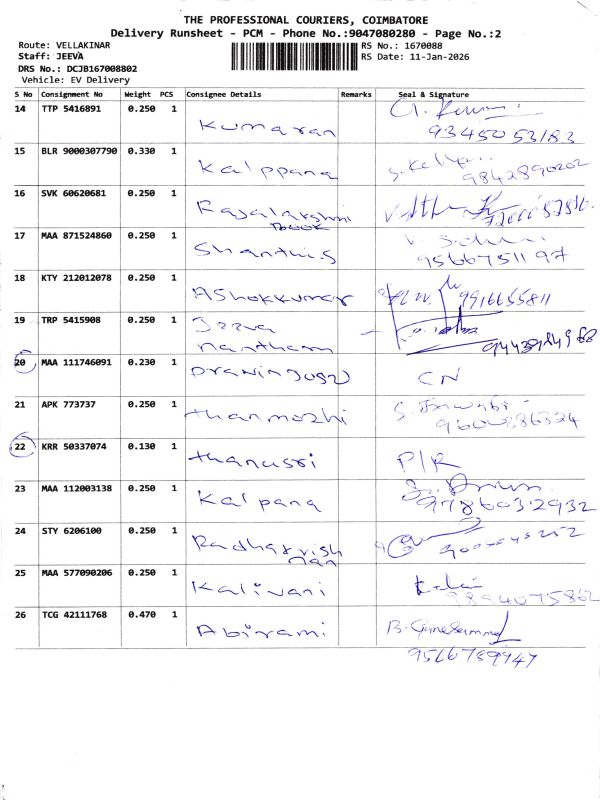 THE PROFESSIONAL COURIERS, COIMBATORE
Delivery Runsheet - PCM - Phone No.:9047080280 - Page No.:2
Route: VELLAKINAR
Staff: JEEVA
DRS No.: DCJB167008802
Vehicle: EV Delivery
RS No.: 1670088
RS Date: 11-Jan-2026
S No Consignment No Weight PCS Consignee Details Remarks Seal & Signature
14 TTP 5416891 0.250 1 Kumaran
9345053183
15 BLR 9000307790 0.330 1 Kalppana
9842890202
16 SVK 60620681 0.250 1 Rajalakshmi
17 MAA 871524860 0.250 1 Shanthi.S
9566751197
18 KTY 212012078 0.250 1 AShokkumar 9916655811
19 TRP 5415908 0.250 1 Jeeva
nantham
20 MAA 111746091 0.230 1 CN
21 APK 773737 0.250 1 thanmozhi
22 KRR 50337074 0.130 1 thanusri P/R
23 MAA 112003138 0.250 1 Kalpana
9786032932
24 STY 6206100 0.250 1 Radhakrish
nan
25 MAA 577090206 0.250 1 Kalivani
9894075862
26 TCG 42111768 0.470 1 Abirami
9566789947